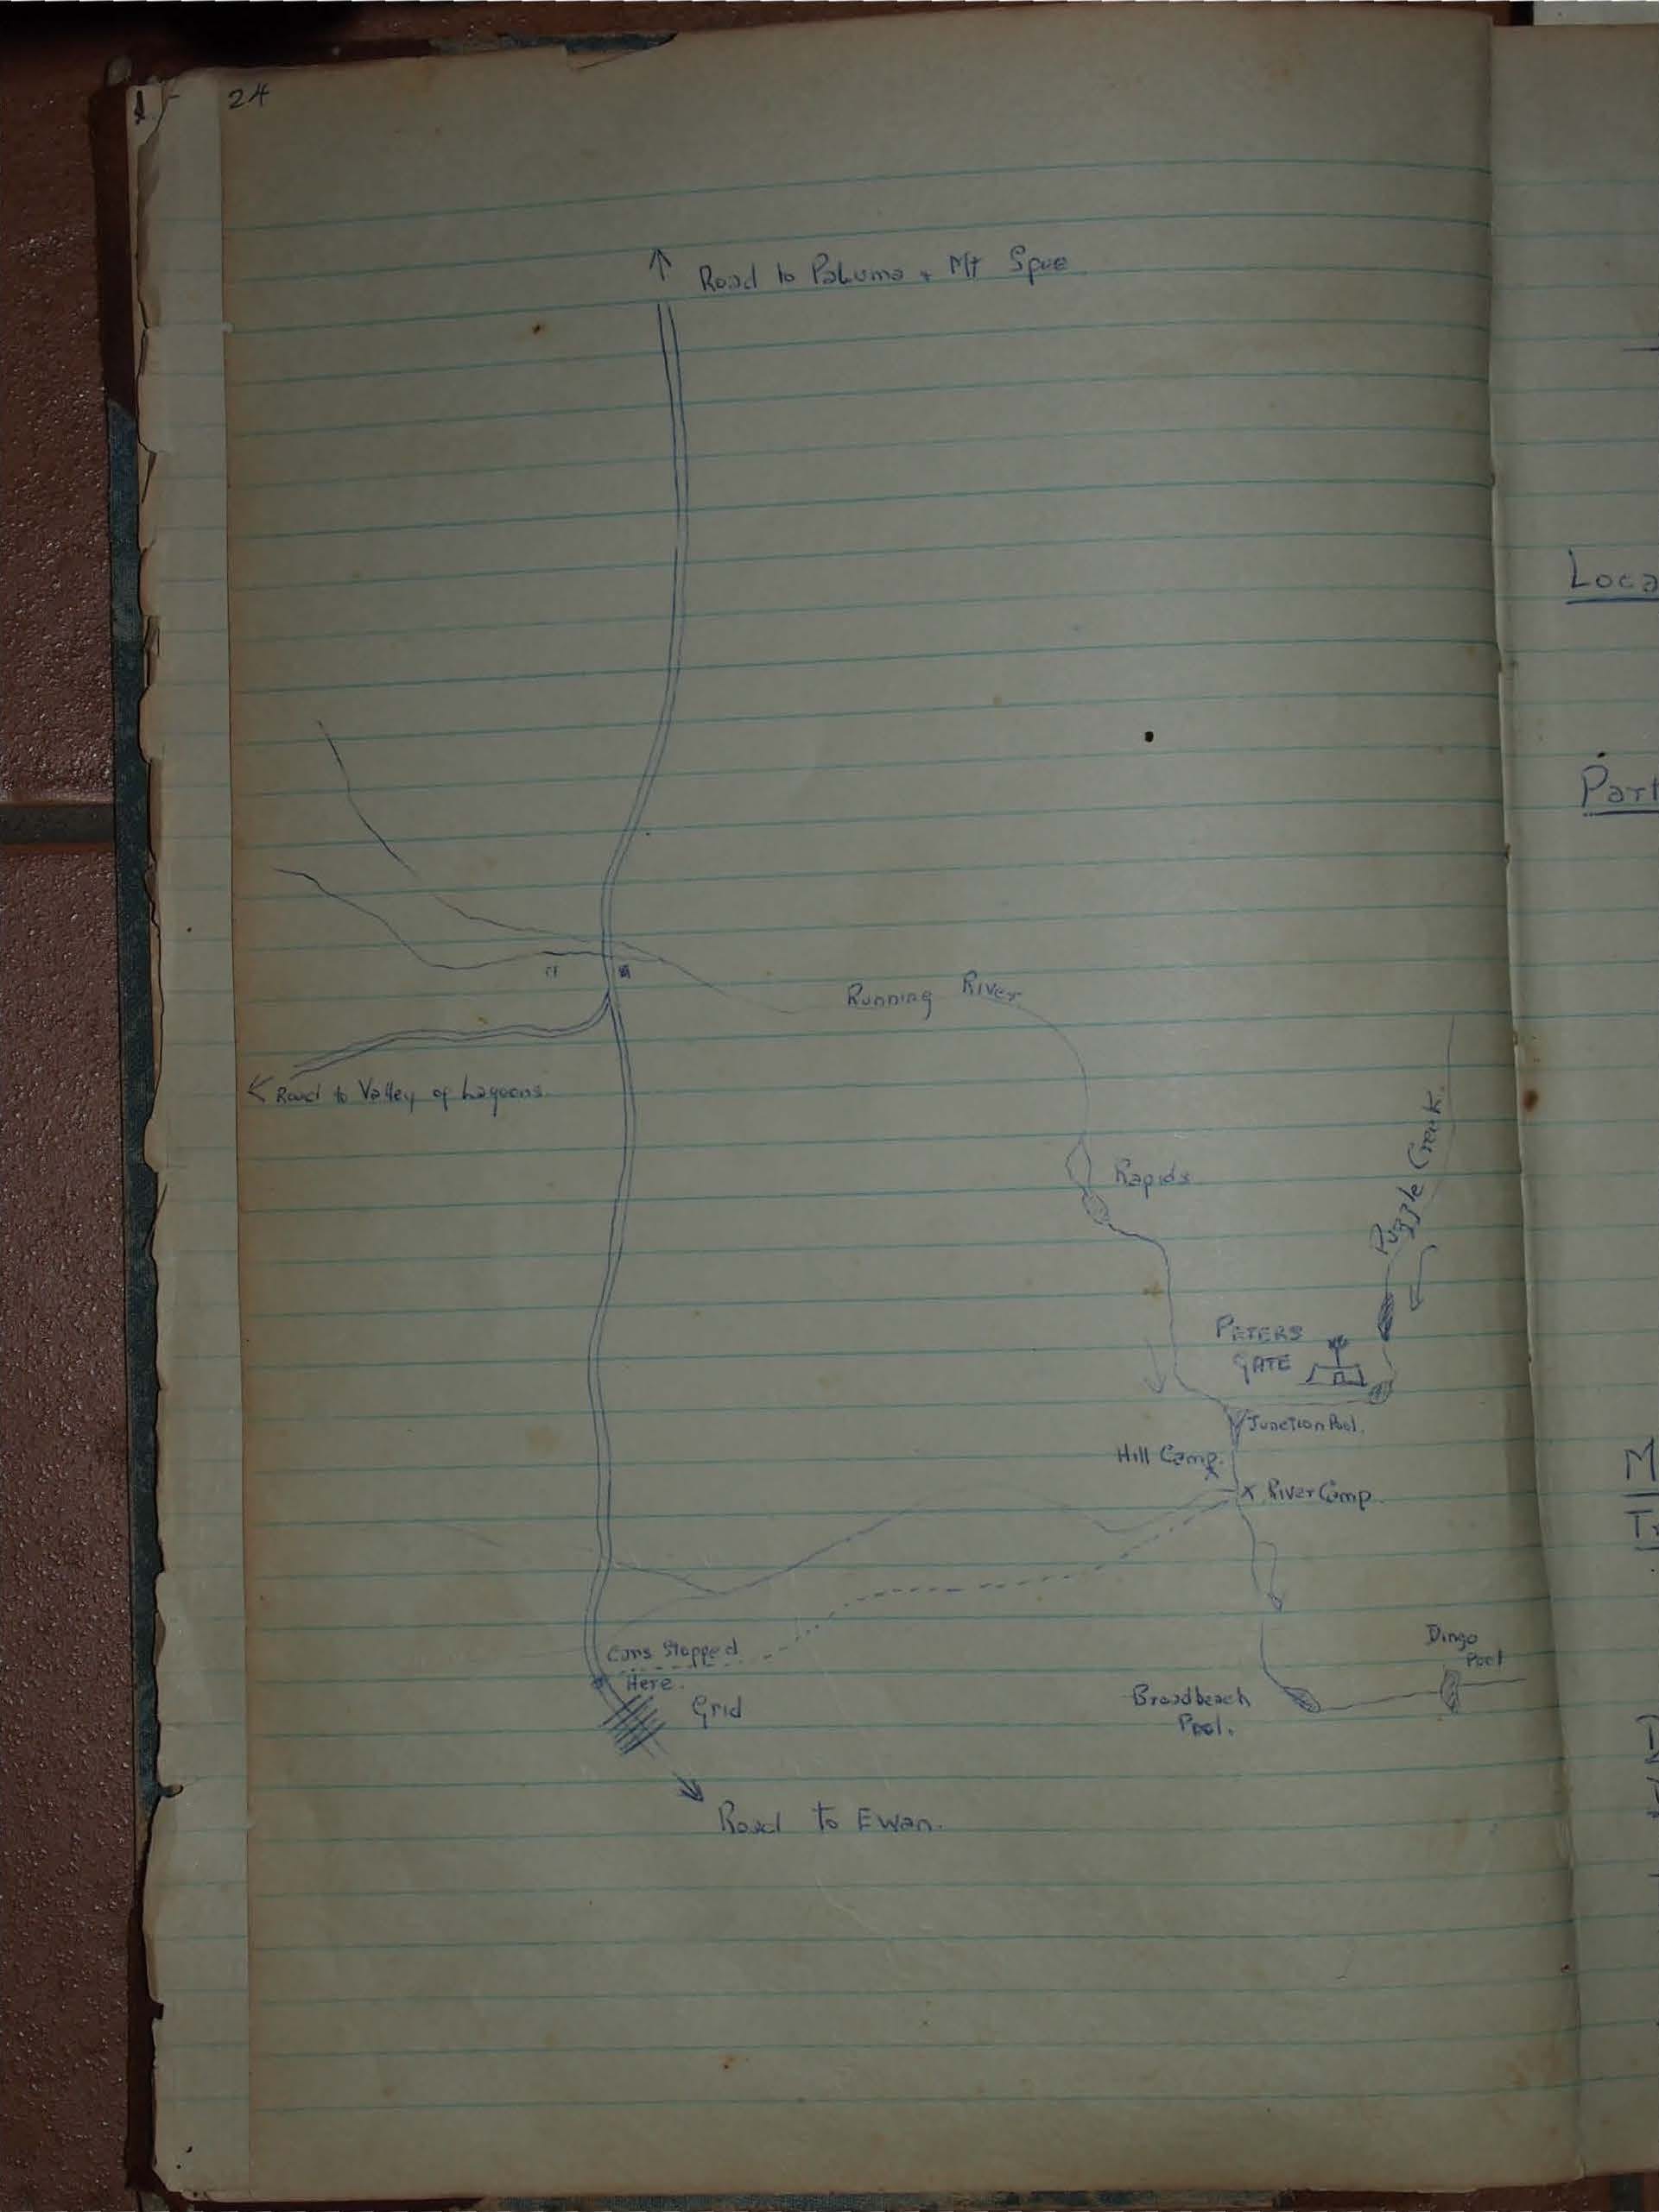 24
Road to Paluma + Mt Spec
Loca
Part
Running River
Road to Valley of Lagoons.
Rapids
Puzzle Creek.
PETERS
GATE
Junction Pool.
Hill Camp.
x River Camp.
M
Tr
Cars Stopped
Here.
Grid
Dingo
Pool
Broadbeach
Pool.
Road to Ewan.